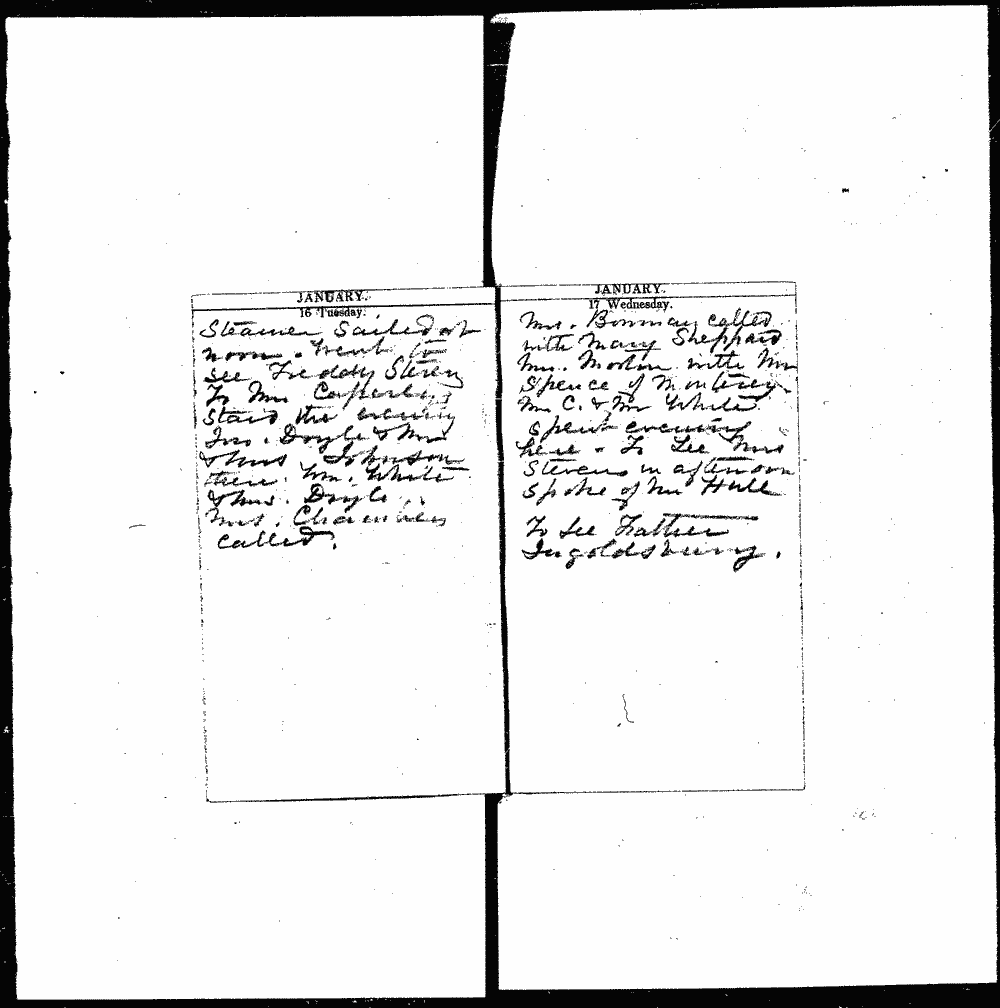 JANUARY.
16 Tuesday.
Steamer Sailed at
noon. Went to
see Freddy Stevens
To Mrs
Staid the evening
Jno. Doyle & Mrs
& Mrs Johnson
there. Wm. White
& Mrs. Doyle.
Mrs. Chambers
called.
JANUARY.
17 Wednesday.
Mrs. Bowman called
with Mary Sheppard
Mrs. Morton with Mrs
Spence of Monterey
Mr C. & Mr White
spent evening
here. To See Mrs
Stevens in afternoon
Spoke of Mr Hull
To See Father
Ingoldsbury.